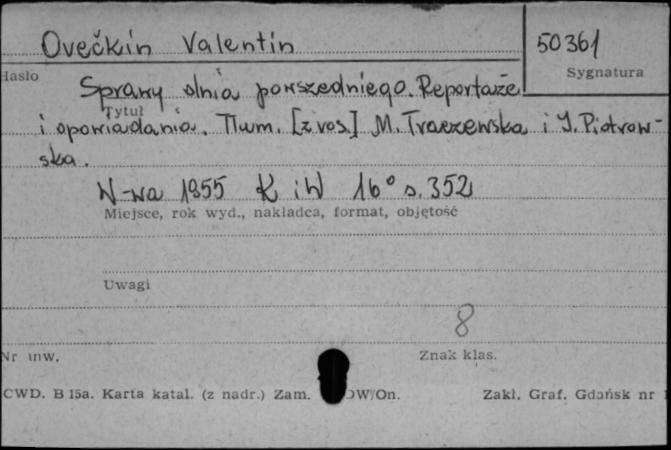 Ovečkin Valentin 50361
Hasło Sygnatura
Sprawy dnia powszedniego. Reportaże
Tytuł
i opowiadania. Tłum. [z ros.] M. Traczewska i J. Piotrow-
ska.
W-wa 1955 K i W 16° s. 352
Miejsce, rok wyd., nakładca, format, objętość
Uwagi
8
Nr inw. Znak klas.
CWD. B 15a. Karta katal. (z nadr.) Zam. DW/On. Zakł. Graf. Gdańsk nr